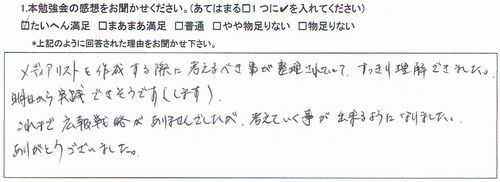 1.本勉強会の感想をお聞かせください。(あてはまる□1つに✔を入れてください)
☑たいへん満足 □まあまあ満足 □普通 □やや物足りない □物足りない
*上記のように回答された理由をお聞かせ下さい。
メディアリストを作成する際に考えるべき事が整理されていて、すっきり理解できました。
明日から実践できそうです(します)。
これまで広報戦略がありませんでしたが、考えていく事が出来るようになりました。
ありがとうございました。